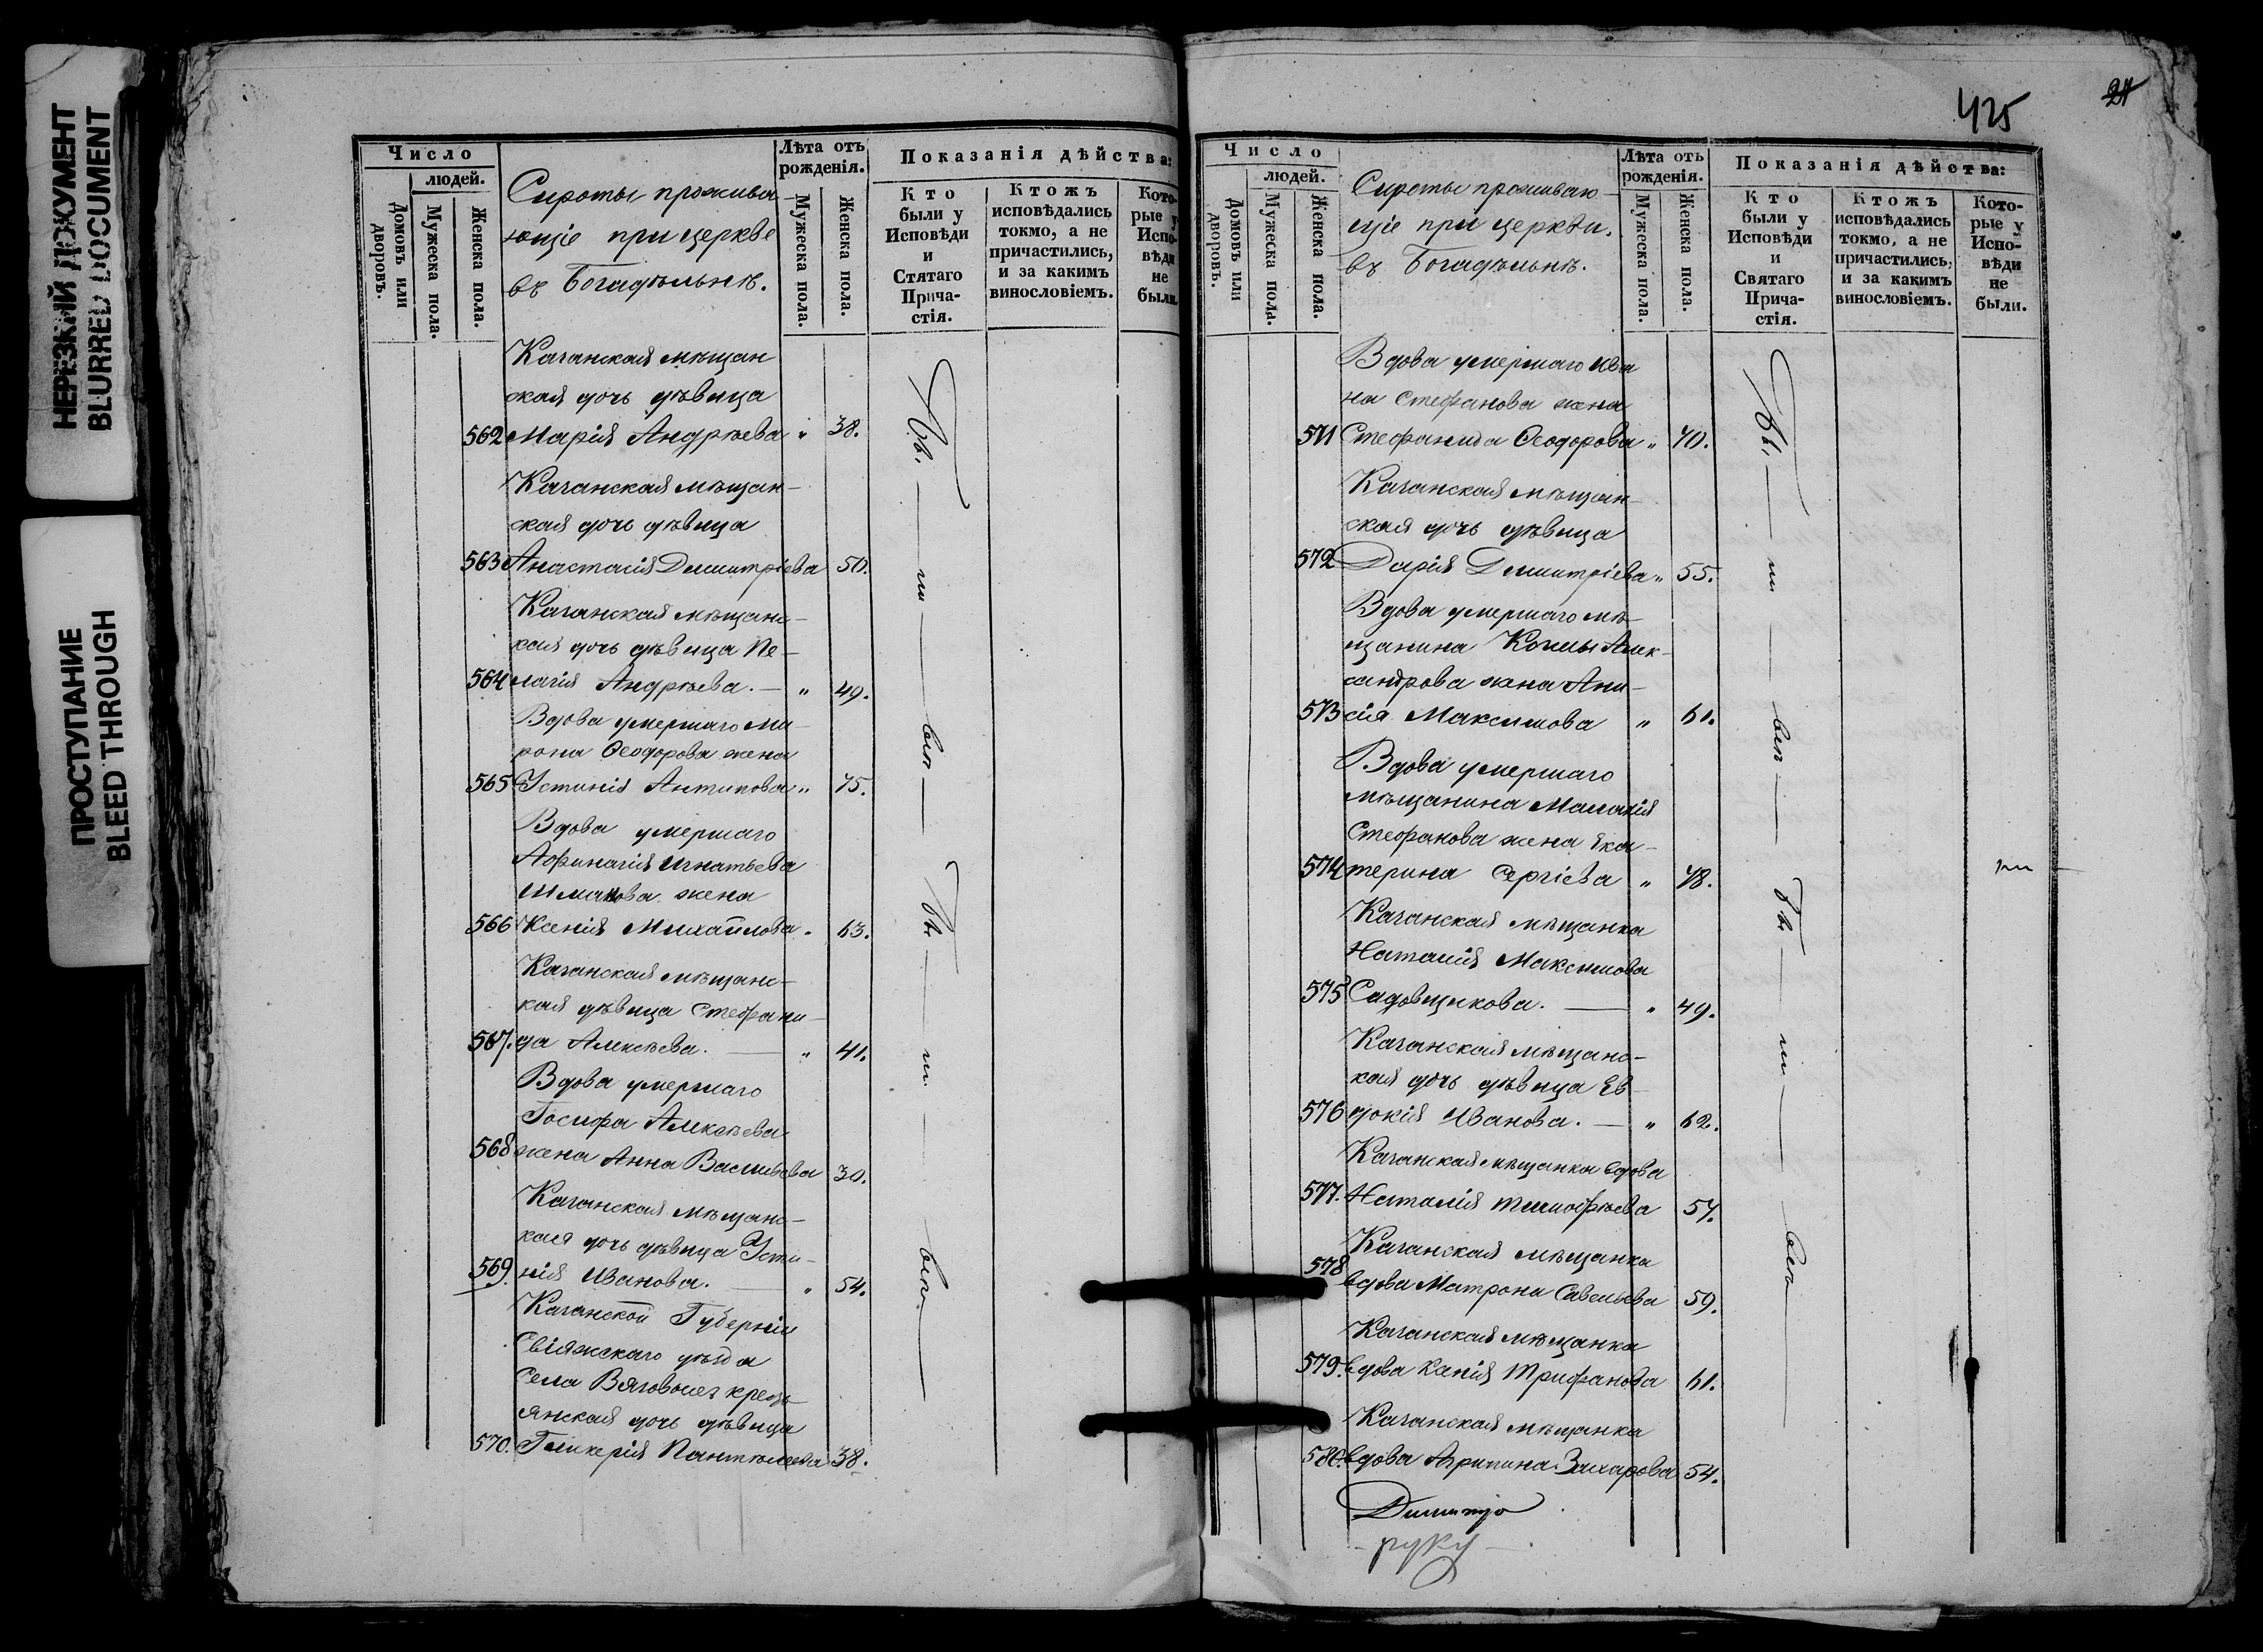 НЕРЕЗКИЙ ДОКУМЕНТ
BLURRED DOCUMENT
ПРОСТУПАНИЕ
BLEED THROUGH
Число
людей.
Домовъ или дворовъ.
Мужеска пола.
Женска пола.
Сироты прожива-
ющіе при церкве
въ Богадѣльнѣ.
Лѣта отъ рожденія.
Мужеска пола.
Женска пола.
Показанія дѣйства:
Кто были у Исповѣди и Стятаго Прича-стія.
Ктожъ исповѣдались токмо, а не причастились, и за какимъ винословіемъ.
Кото-рые у Испо-вѣди не были.
Казанская мѣщан
ская дочь дѣвица
562 Марія Андрѣева " 38.
Казанская мѣщан-
ская дочь дѣвица
563 Анастасія Димитріева 50.
Казанская мѣщанс-
кая дочь дѣвица Пе-
564 лагія Андрѣева. — " 49.
Вдова умершаго Ми-
рона Ѳеодорова жена
565 Устинія Антипова " 75.
Вдова умершаго
Афонасія Игнатьева
жена
566 Ксенія Михайлова " 63.
Казанская мѣщанс-
кая дѣвица Стефани-
567. да Алексѣева. — " 41.
Вдова умершаго
Іосифа Алексѣева
568 жена Анна Васильева 30.
Казанская мѣщанс-
кая дочь дѣвица Усти-
569. нія Иванова. — " 54.
Казанской Губерніи
Свіяжскаго уѣзда
Села Вязовыхъ кресть-
янская дочь дѣвица
570. Гликерія Пантелеева 38.
Бы
ли
всп
Бы
ли
всп
425
21
Число
людей.
Домовъ или дворовъ.
Мужеска пола.
Женска пола.
Сироты проживаю-
щіе при церкви.
въ Богадѣльнѣ.
Лѣта отъ рожденія.
Мужеска пола.
Женска пола.
Показанія дѣйства:
Кто были у Исповѣди и Святаго Прича-стія.
Ктожъ исповѣдались токмо, а не причастились, и за какимъ винословіемъ.
Кото-рые у Испо-вѣди не были.
Вдова умершаго Ива
на Стефанова жена
571 Стефанида Ѳеодорова " 70.
Казанская мѣщан-
ская дочь дѣвица
572 Дарія Димитріева " 55.
Вдова умершаго мѣ-
щанина Козмы Алек-
сандрова жена Ани-
573 сія Максимова " 61.
Вдова умершаго
мѣщанина Малахія
Стефанова жена Ека-
574 терина Сергіева " 48.
Казанская мѣщанка
Наталія Максимова
575 Садовщикова. — " 49.
Казанская мѣщанс-
кая дочь дѣвица Ев-
576 докія Иванова. — " 62.
Казанская мѣщанка вдова
577. Наталія Тимофѣева 57.
Казанская мѣщанка
578 вдова Матрона Савельева 59.
Казанская мѣщанка
579. вдова Ксенія Трифанова 61.
Казанская мѣщанка
580. вдова Агрипина Захарова 54.
Димитр
руку